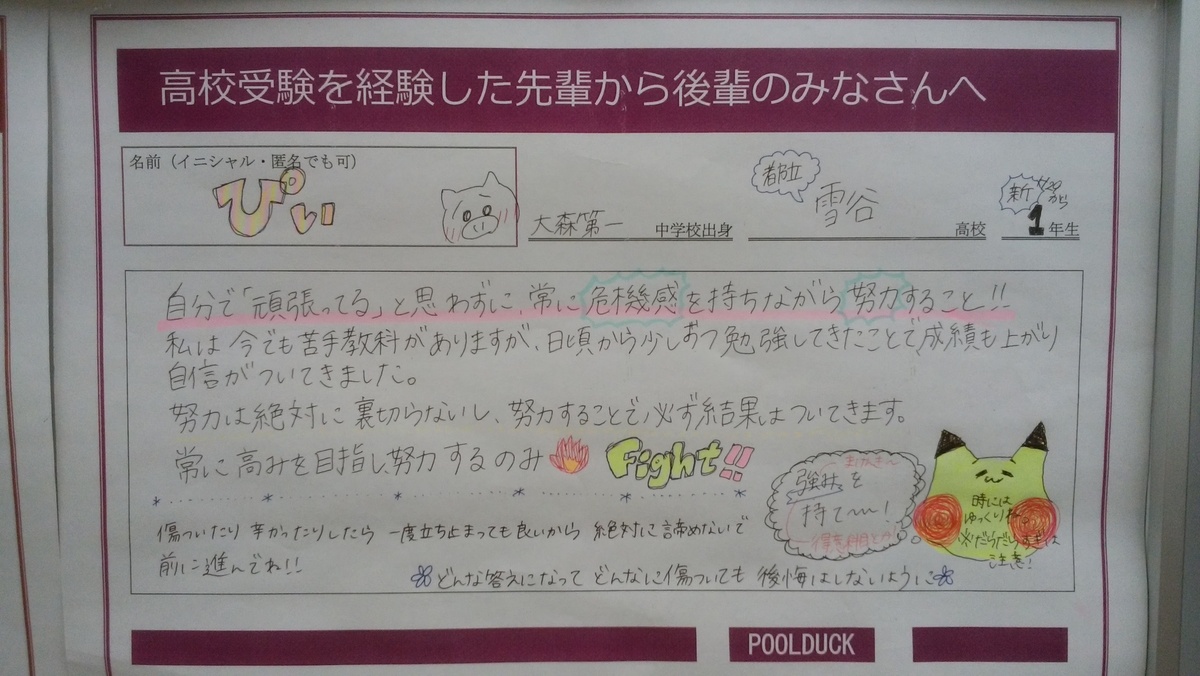 高校受験を経験した先輩から後輩のみなさんへ
名前（イニシャル・匿名でも可）
ぴぃ
大森第一 中学校出身
都立
雪谷 高校
新 から
1 年生
自分で「頑張ってる」と思わずに、常に危機感を持ちながら努力すること!!
私は今でも苦手教科がありますが、日頃から少しずつ勉強してきたことで成績も上がり
自信がついてきました。
努力は絶対に裏切らないし、努力することで必ず結果はついてきます。
常に高みを目指し努力するのみ Fight!!
強みを
持て〜!
傷ついたり 辛かったりしたら 一度立ち止まっても良いから 絶対に諦めないで
前に進んでね!!
どんな答えになって どんなに傷ついても 後悔はしないように
時には
ゆっくりね
※だらだらしすぎは
注意!
POOLDUCK